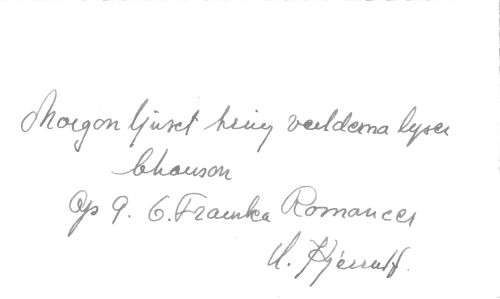 Morgon ljuset kring verldema lyser
Chanson
Op 9. 6. Franska Romancer
H. Kjerulf.